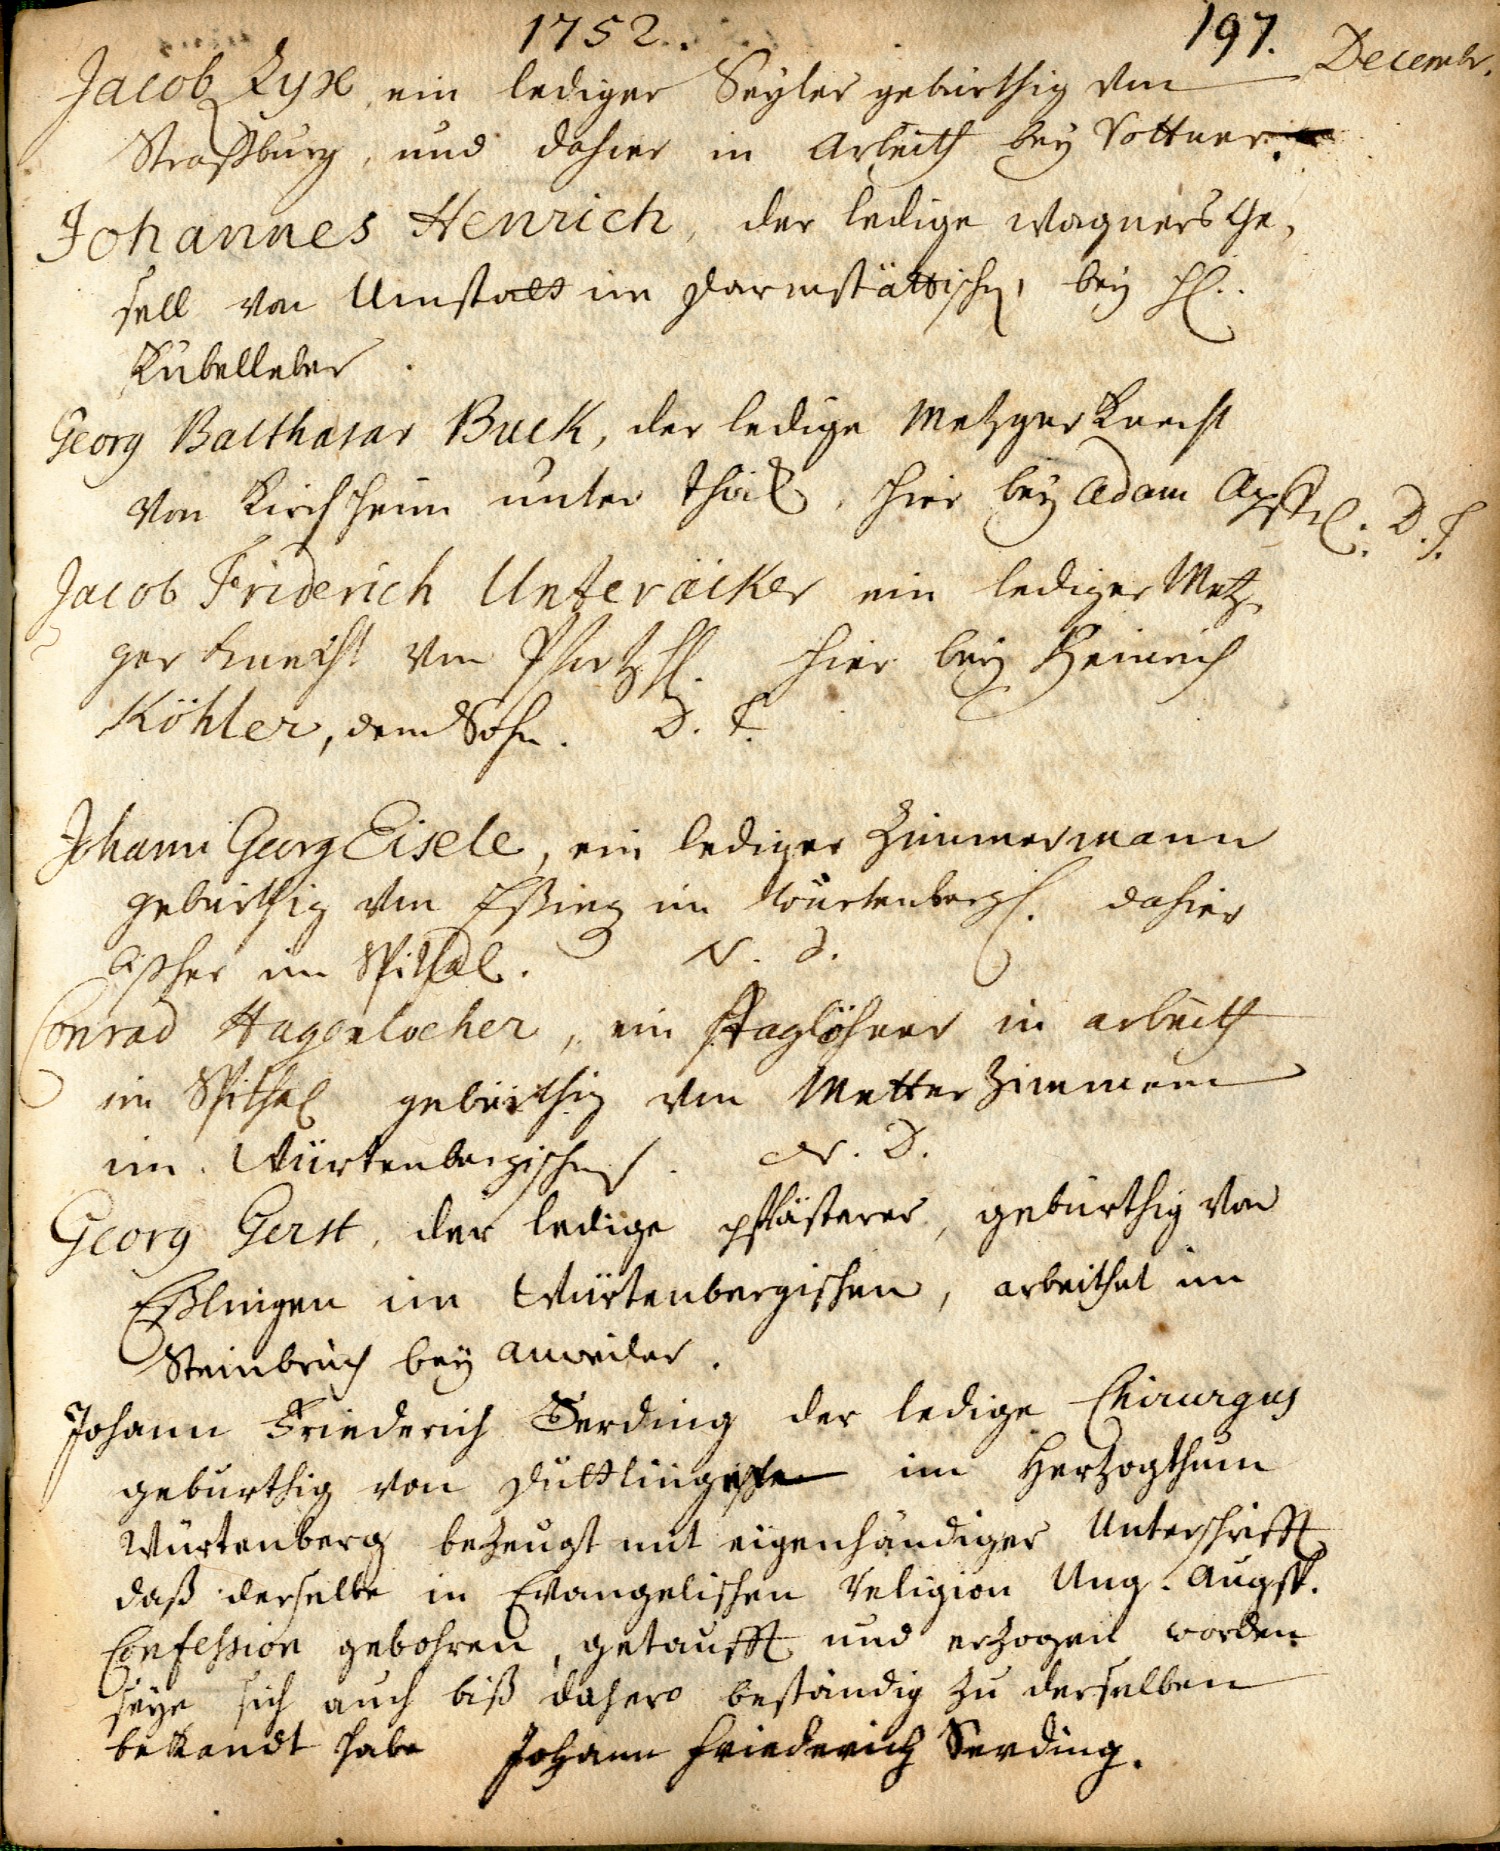 1752. 197.
Decembr.
Jacob Lyx, ein lediger Seyler gebürthig von
Straßburg, und dahier in Arbeith bey Vottner.
Johannes Henrich, der ledige Wagners Ge-
sell von Umstatt im Darmstättischen, bey H.
Kübelleber.
Georg Balthasar Buck, der ledige Metzger Knecht
von Kirchheim unter Thek, hier bey Adam D. J.
Jacob Friderich Unteräcker ein lediger Metz-
ger Knecht von hier bey Heinrich
Köhler, dem Sohn. D. J.
Johann Georg Eisele, ein lediger Zimmermann
gebürthig von im Würtenberg. dahier
im Spithal. N. D.
Conrad Hagenlocher, ein Taglöhner in arbeith
im Spithal gebürthig von Metterzimmern
im Würtenbergischen. N. D.
Georg Gerst, der ledige Pflästerer, gebürthig von
Eßlingen im Würtenbergischen, arbeithet im
Steinbruch bey Anweiler.
Johann Friederich Serding der ledige Chirurgus
gebürthig von Duttlingen im Hertzogthum
Würtenberg bezeugt mit eigenhändiger Unterschrifft
daß derselbe in Evangelischen Religion Ung. Augsp.
Confession gebohren, getaufft und erzogen worden
seye sich auch biß dahero beständig zu derselben
bekandt habe Johann Friederich Serding.